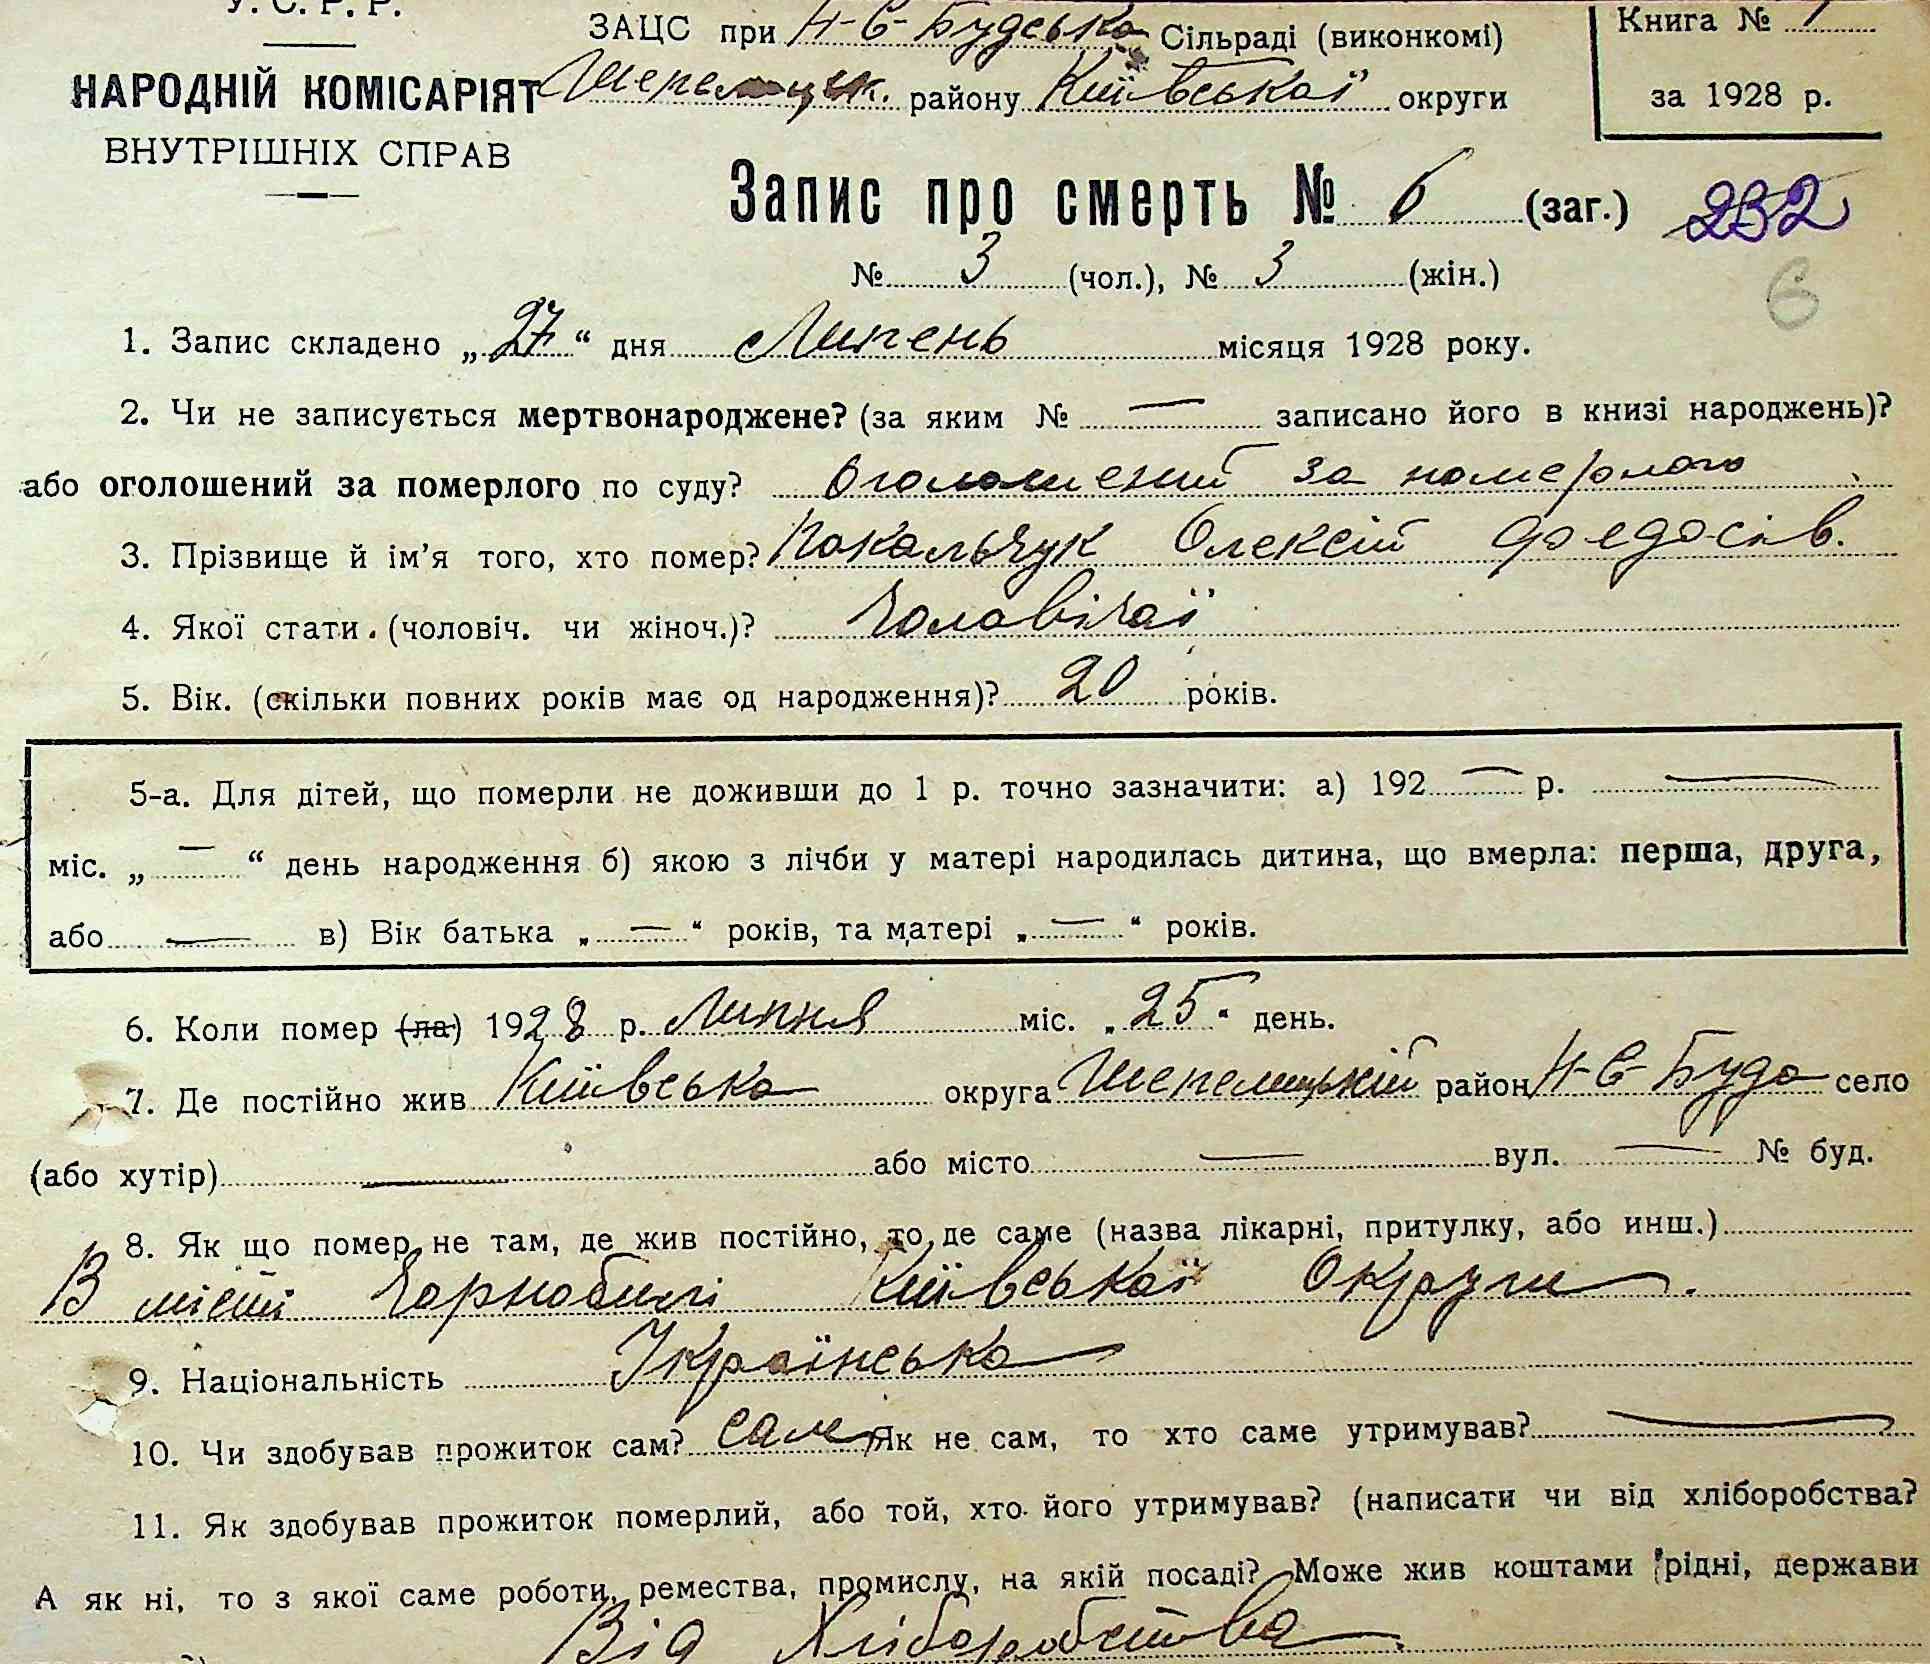 У. С. Р. Р.
НАРОДНІЙ КОМІСАРІЯТ
ВНУТРІШНІХ СПРАВ
ЗАЦС при Н-С-Будська Сільраді (виконкомі)
Шепелицьк. району Київської округи
Книга № 1
за 1928 р.
Запис про смерть № 6 (заг.) 232
№ 3 (чол.), № 3 (жін.)
6
1. Запис складено „27“ дня Липень місяця 1928 року.
2. Чи не записується мертвонароджене? (за яким № — записано його в книзі народжень)?
або оголошений за померлого по суду? Оголошений за померлого
3. Прізвище й ім'я того, хто помер? Покальчук Олексій Федосів.
4. Якої стати (чоловіч. чи жіноч.)? Чоловічої
5. Вік. (скільки повних років має од народження)? 20 років.
5-а. Для дітей, що померли не доживши до 1 р. точно зазначити: а) 192 — р. —
міс. „ — “ день народження б) якою з лічби у матері народилась дитина, що вмерла: перша, друга,
або — в) Вік батька „ — “ років, та матері „ — “ років.
6. Коли помер (ла) 1928 р. Липня міс. „25“ день.
7. Де постійно жив Київська округа Шепелицький район Н-С-Буда село
(або хутір) — або місто — вул. — № буд.
8. Як що помер не там, де жив постійно, то де саме (назва лікарні, притулку, або инш.)
В місті Чорнобилі Київської Округи.
9. Національність Українська
10. Чи здобував прожиток сам? сам Як не сам, то хто саме утримував? —
11. Як здобував прожиток померлий, або той, хто його утримував? (написати чи від хліборобства?
А як ні, то з якої саме роботи, ремества, промислу, на якій посаді? Може жив коштами рідні, держави
Від Хліборобства